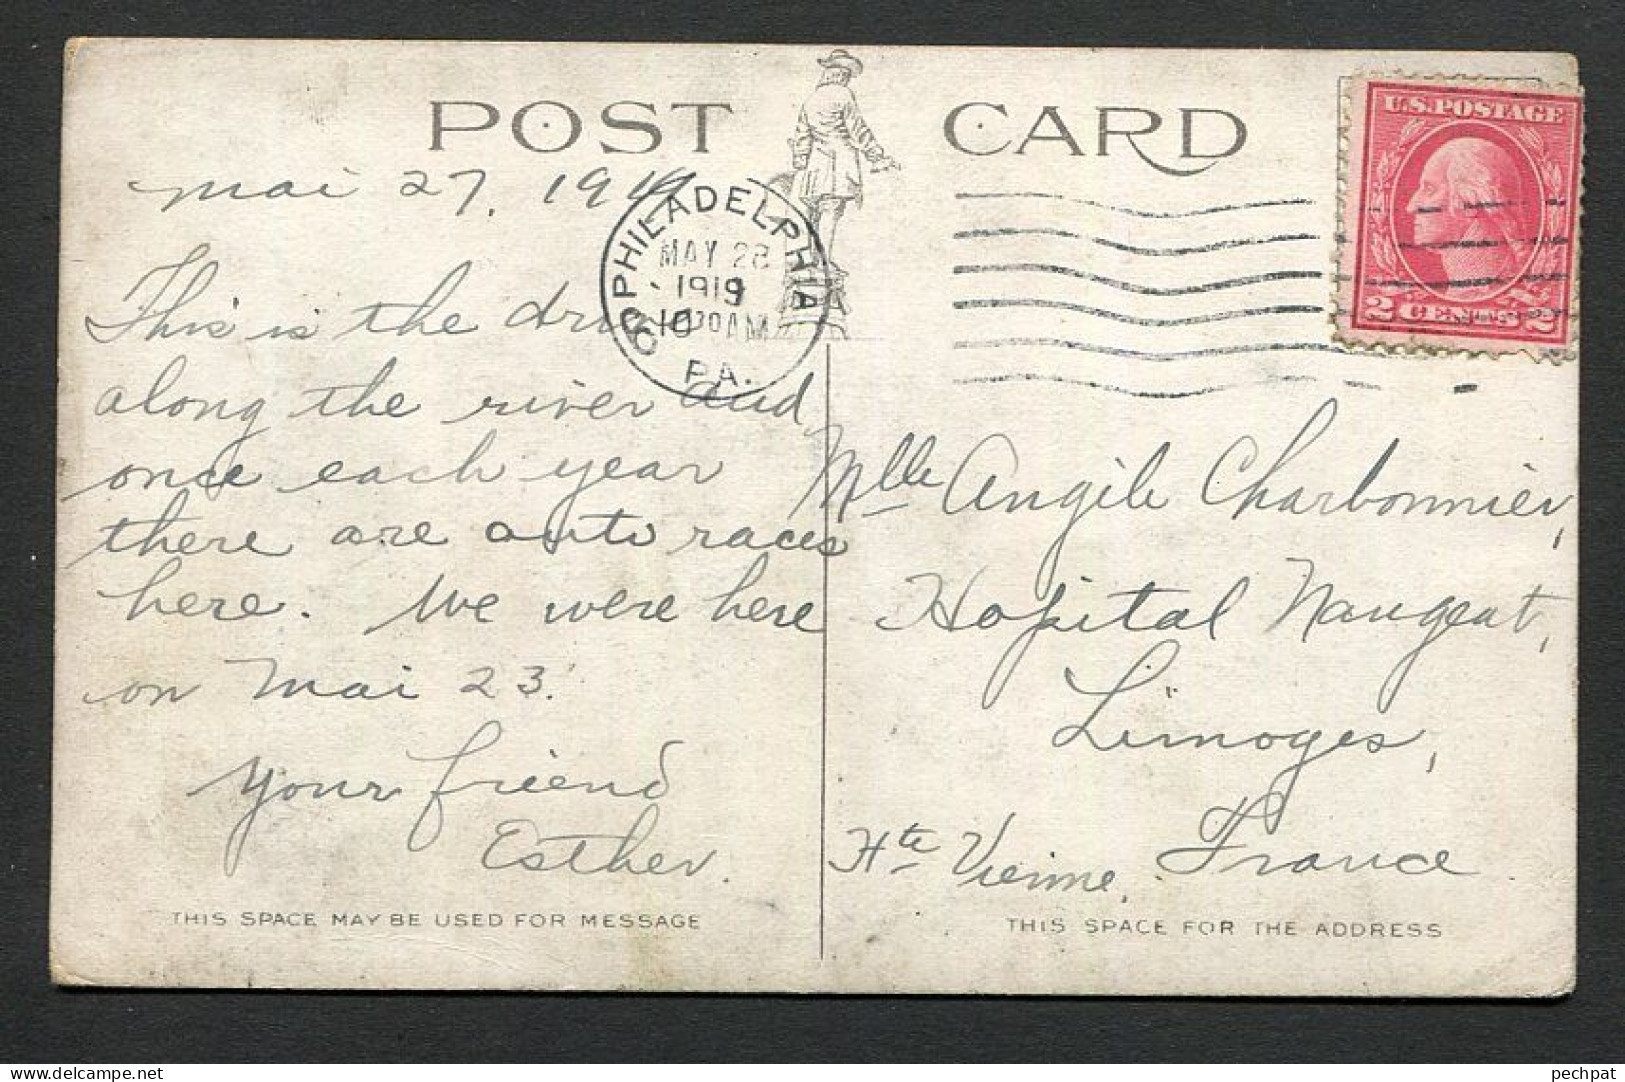 POST CARD
U.S. POSTAGE
2 CENTS 2
PHILADELPHIA
6
MAY 28
1919
10 30 AM
PA.
Mai 27, 1919
This is the drive
along the river and
once each year
there are auto races
here. We were here
on Mai 23.
Your friend
Esther.
Mlle Angile Charbonnier,
Hopital Naugeat,
Limoges,
Hte Vienne, France.
THIS SPACE MAY BE USED FOR MESSAGE
THIS SPACE FOR THE ADDRESS
pechpat